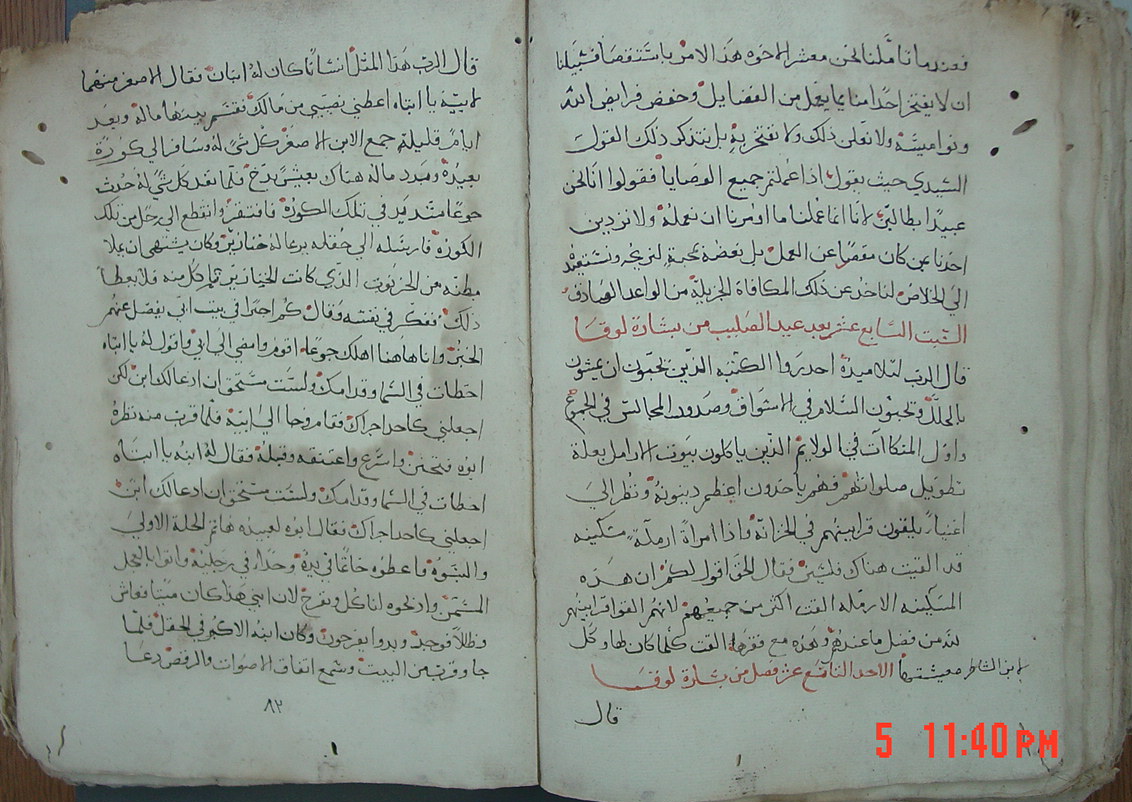 فعندما تاملنا نحن معشر الاخوه هذا الامر باستقصا فسبيلنا
ان لا يفتخر احدا منا بما يفعل من الفضايل وحفض فرايض الله
ونواميسه ولا نعلن ذلك ولا نفتخر به بل نتذكر ذلك القول
السيدي حيث يقول اذا عملتم جميع الوصايا فقولوا اننا نحن
عبيدا بطالين لاننا انما عملنا ما اومرنا ان نعمله ولا نزدين
احدنا بمن كان مقصرا عن العمل بل بعضه لنربحه ونستعيد
الى الخلاص لناخد عن ذلك المكافاة الجزيله من الواعد الصادق
السبت السابع عشر بعد عيد الصليب من بشارة لوقا
قال الرب لتلاميده احدروا الكتبه الذين يحبون ان يمشون
بالحلل ويحبون السلام في الاسواق وصدور المجالس في الجموع
واول المتكات في الولايم الذين ياكلون بيوت الارامل بعلة
تطويل صلواتهم فهم ياخدون اعظم دينونة ونظر الى
اغنيا يلقون قرابينهم في الخزانه واذا امراة ارملة مسكينه
قد القت هناك فلسين فقال الحق اقول لكم ان هذه
المسكينه الارمله القت اكثر من جميعهم لانهم القوا قرابينهم
لله من فضل ما عندهم وهذه مع فقرها القت كلما كان لها وكل
معيشتها الاحد التاسع عشر فصل من بشارة لوقا
لابن الشاطر
قال
قال الرب هذا المثل انسانا كان له ابنان فقال الاصغر منهما
لابيه يا ابتاه اعطني نصيبي من مالك فقسم بينهما ماله وبعد
ايام قليلة جمع الابن الاصغر كل شي له وسافر الى كورة
بعيدة وبدد ماله هناك بعيش بدخ فلما نفد كل شي له حدث
جوعا شديد في تلك الكورة فافتقر وانقطع الى رجل من تلك
الكورة فارسله الى حقله يرعا له خنازير وكان يشتهى ان يملا
بطنه من الخرنوب الذي كانت الخنازير تاكل منه فلا يعطا
ذلك ففكر في نفسه وقال كم اجيرا في بيت ابي يفضل عنهم
الخبز وانا هاهنا اهلك جوعا اقوم وامضي الى ابي واقول له يا ابتاه
اخطات في السما وقدامك ولست مستحق ان ادعا لك ابن لكن
اجعلني كاحد اجراك فقام وجا الى ابيه فلما قرب منه نظره
ابوه فتحنن واسرع واعتنقه وقبله فقال له ابنه يا ابتاه
اخطات في السما وقدامك ولست مستحق ان ادعا لك ابن
اجعلني كاحد اجراك فقال ابوه لعبيده هاتم الحلة الاولى
والبسوه واعطوه خاتما في يده وحدا في رجليه واتوا بالعجل
المسمن وادبحوه لناكل ونفرح لان ابني هذا كان ميتا فعاش
وظالا فوجد وبدوا يفرحون وكان ابنه الاكبر في الحقل فلما
جا وقرب من البيت وسمع اتفاق الاصوات والرقص دعا
٨٢
5 11:40 PM